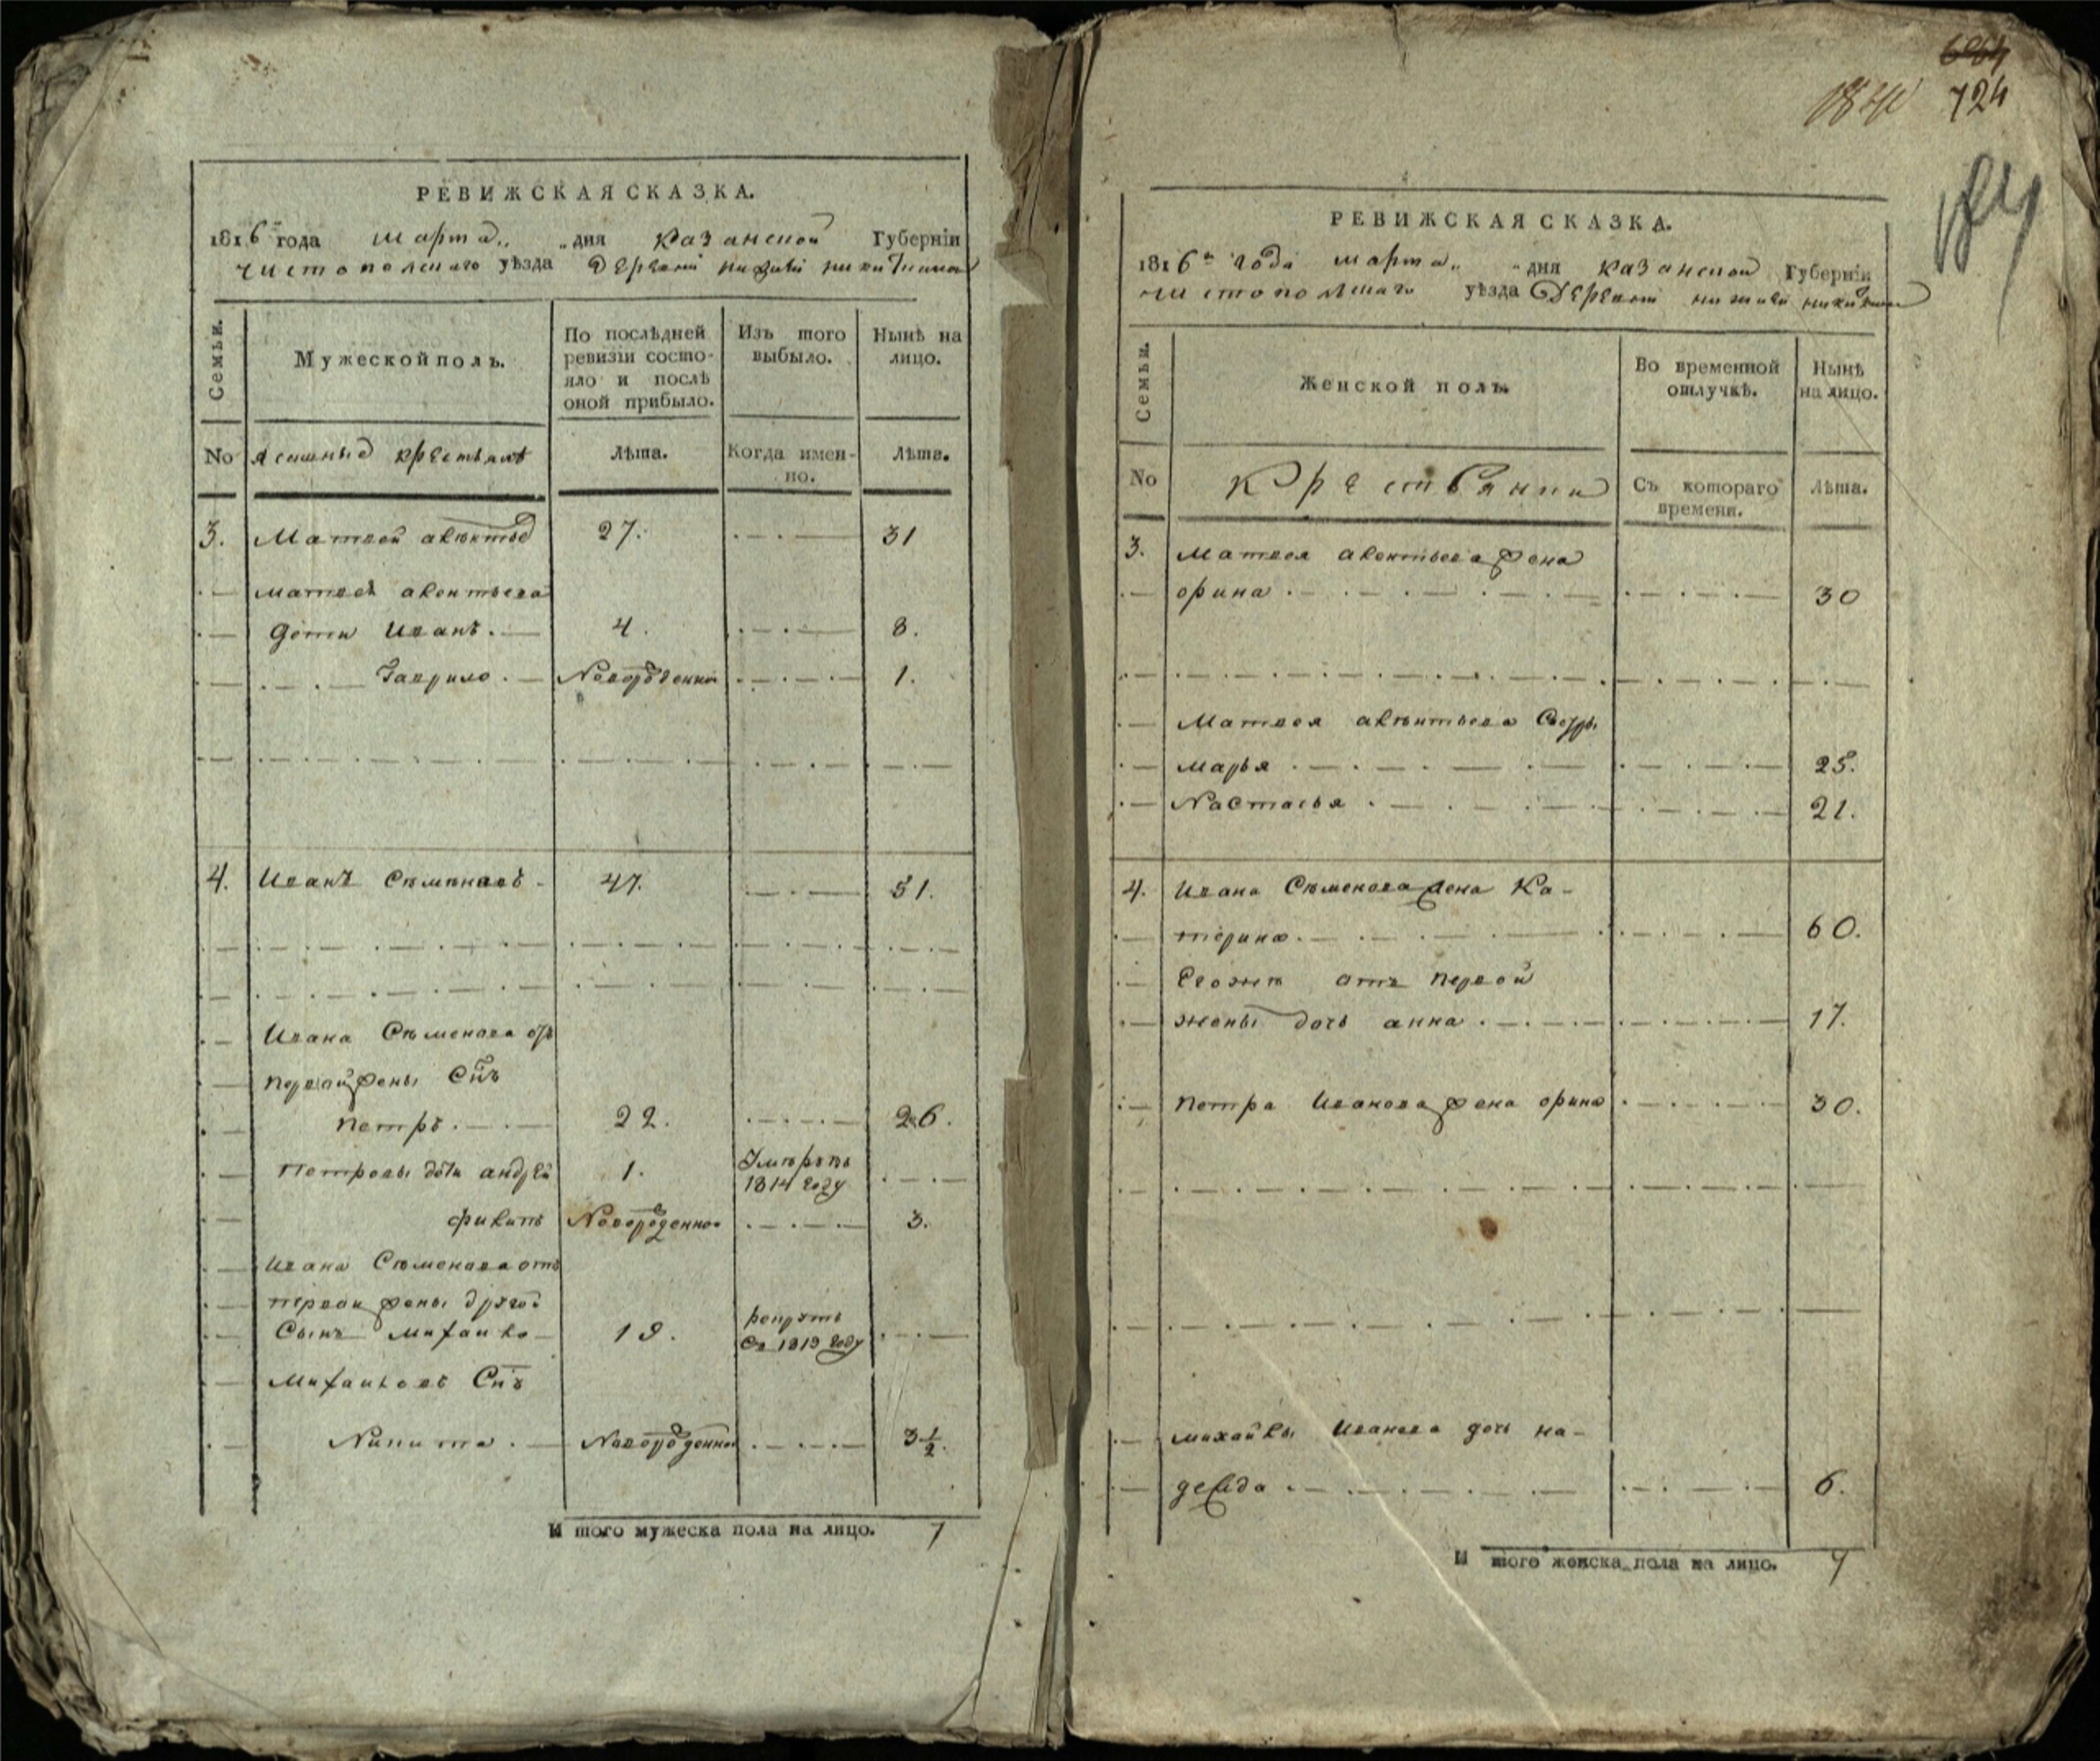 РЕВИЖСКАЯ СКАЗКА.
1816 года марта „ „ дня казанской Губерніи
чистополскаго уѣзда деревни нижней никиткина
Семьи.
Мужеской полъ.
По послѣдней ревизіи состо-
яло и послѣ
оной прибыло.
Изъ того
выбыло.
Нынѣ на
лицо.
No
ясашные крестьянѣ
Лѣта.
Когда имен-
но.
Лѣта.
3. Матвей авѣнтьев 27. 31
матвея авентьева
дети Иванъ. 4. 8.
Гаврило. Новорожденной 1.
4. Иванъ Сѣмѣнавъ 47. 51.
Ивана Сѣменова отъ
первай жены Снъ
петръ. 22. 26.
Петровы дѣти андрей 1. Умѣръ въ
1814 году
филипъ Новорожденной 3.
Ивана Сѣменава отъ
первои жены другой
Сынъ михаило 19. рекрутъ
въ 1813 году
Михаиловъ Снъ
Никита. Новорожденной 3 1/2.
И того мужеска пола на лицо. 7
724
РЕВИЖСКАЯ СКАЗКА.
1816го года марта „ „ дня казанской Губерніи
чистополскаго уѣзда Деревни нижней никиткина
Семьи.
Женской полъ.
Во временной
отлучкѣ.
Нынѣ
на лицо.
No
Крестьянки
Съ котораго
времени.
Лѣта.
3. матвея авентьева жена
орина 30
Матвея авѣнтьева Сестры
марья 25.
Настасья 21.
4. Ивана Сѣменова жена Ка-
терина. 60.
Егожъ отъ первой
жены дочь анна. 17.
петра Иванова жена орина 30.
михайлы Иванова дочь на-
дежда 6.
И того женска пола на лицо. 7